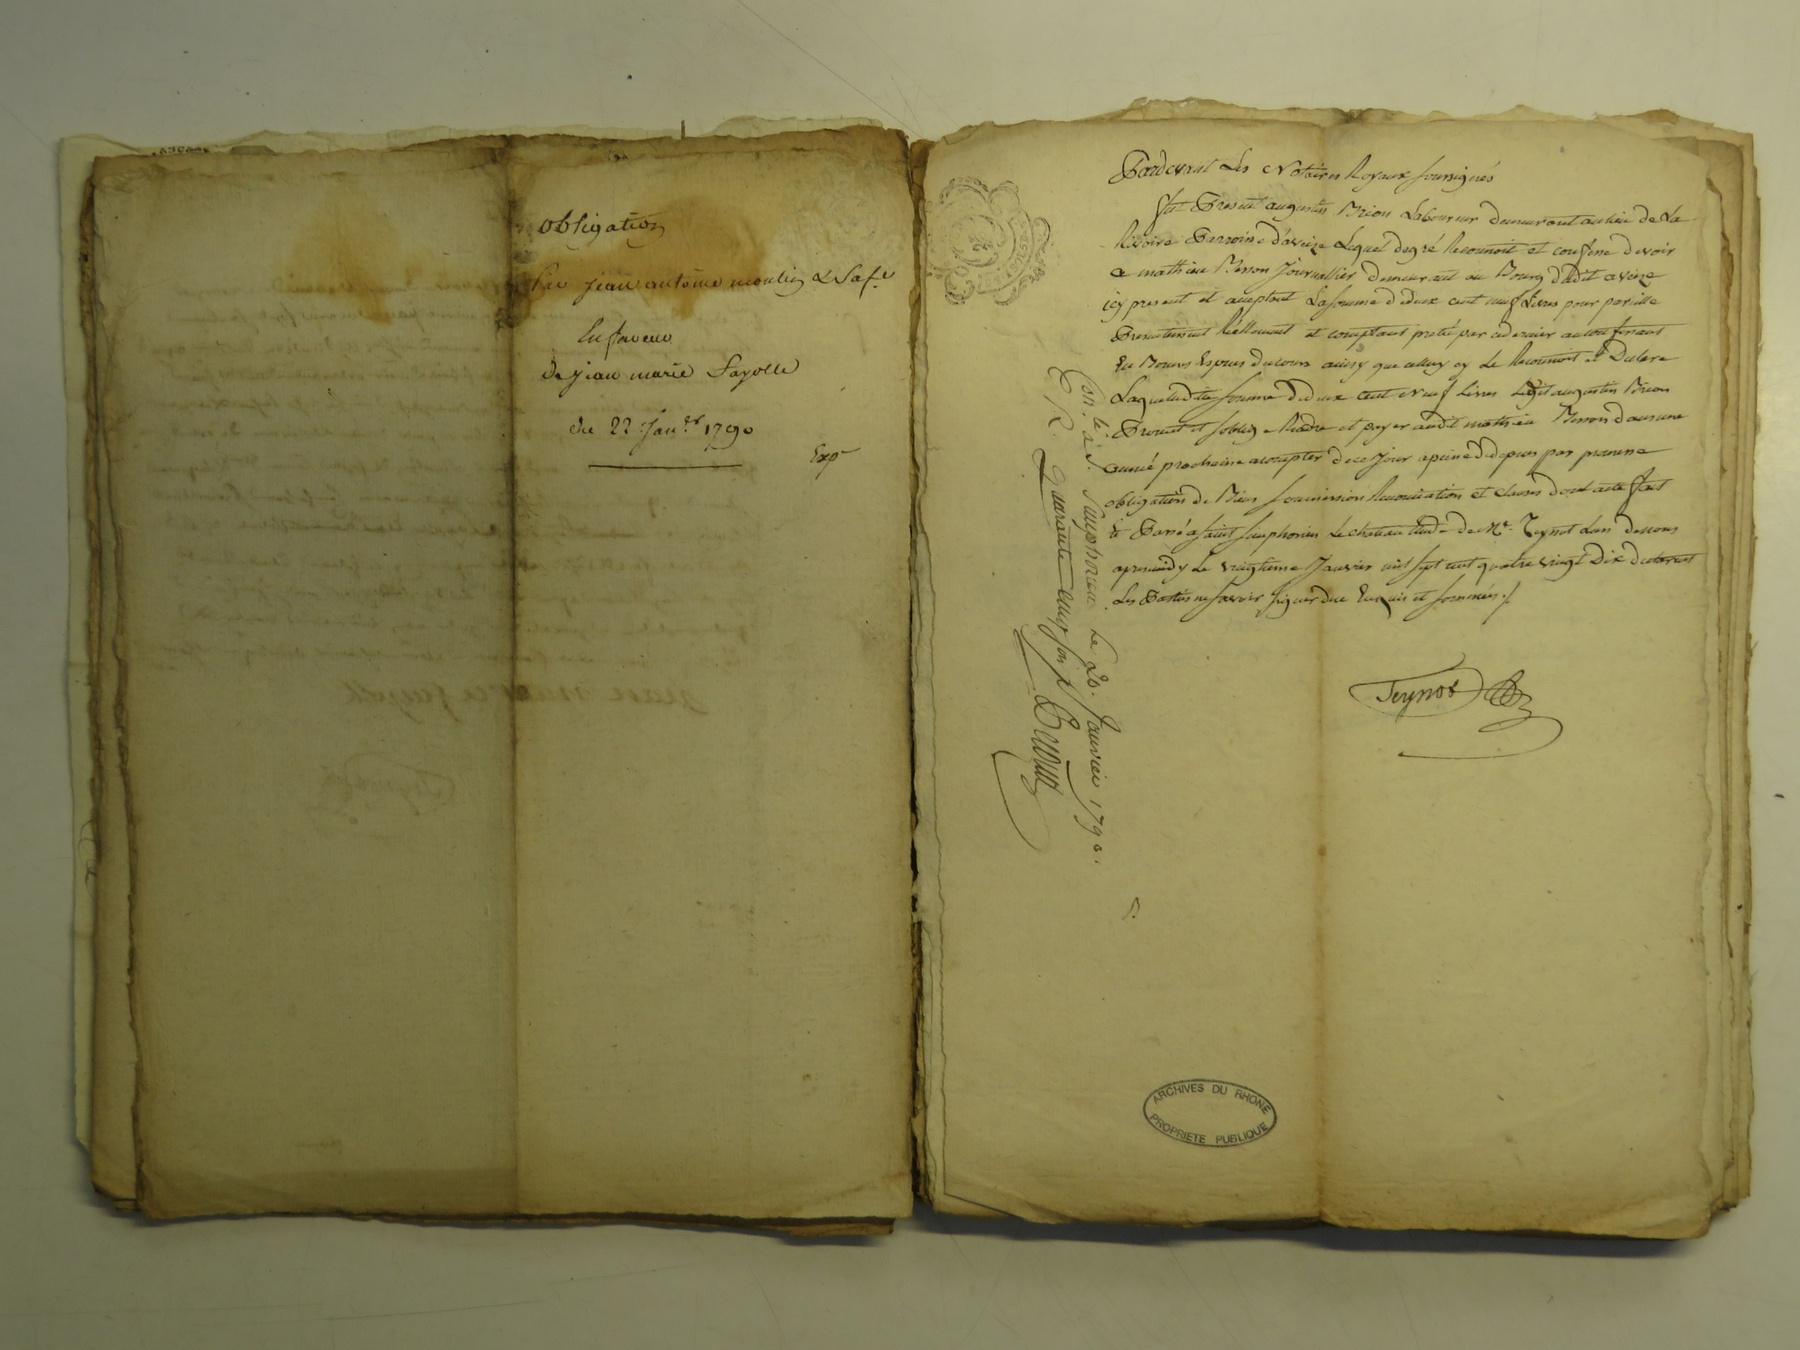 obligation
par jean antoine moulin & Sa fe
En faveur
de jean marie Fayolle
du 22 Janer 1790
Exp
Pardevant Les Notaires Royaux soussignés
fut Present augustin Brion Laboureur demeurant au lieu de La
Rivoire Parroisse d'aveize Lequel de gré Reconnoit et confesse devoir
a mathieu Besson Journallier demeurant au Bourg dudit aveize
icy present et acceptant La somme de deux cent neuf Livres pour pareille
Presentement Réellement et comptant preté par ce dernier au confessant
En Bonnes Especes du cours ainsy que celluy cy Le Reconnoit et Declare
Laquelle ditte somme de deux cent neuf Livres Ledit augustin Brion
Promet et s'oblige Rendre et payer audit mathieu Besson dans une
année prochaine a compter de ce jour a peine de depens par promesse
obligation de Biens soumission Renonciation et clauses dont acte fait
et Passé a saint simphorien Le chateau Etude de Me Teynot L'un de nous
apresmidy Le vingtieme Janvier mil sept cent quatre vingt Dix declarent
Les Parties ne savoir signer de ce Enquis et sommés ./
Teynot
Con. lé à S. Simphorien Le 20. Janvier 1790.
R. Quarante cinq sols
ARCHIVES DU RHONE
PROPRIETE PUBLIQUE